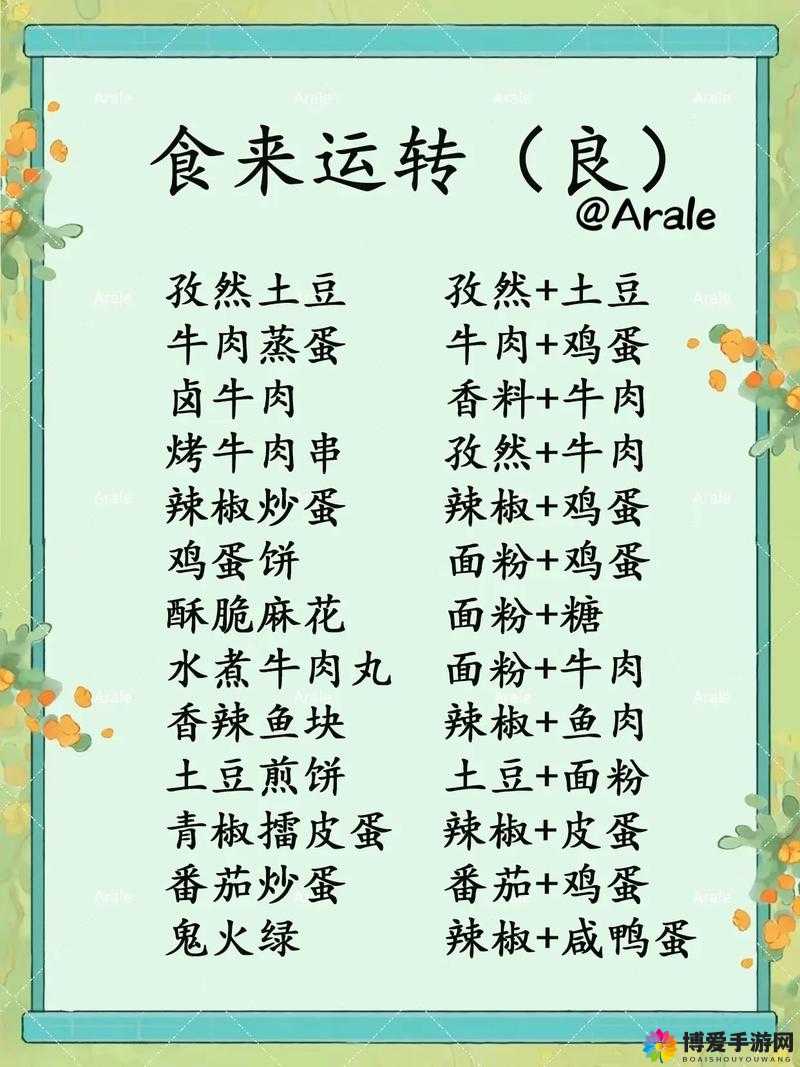 食来运转（良）
@Arale
孜然土豆 孜然+土豆
牛肉蒸蛋 牛肉+鸡蛋
卤牛肉 香料+牛肉
烤牛肉串 孜然+牛肉
辣椒炒蛋 辣椒+鸡蛋
鸡蛋饼 面粉+鸡蛋
酥脆麻花 面粉+糖
水煮牛肉丸 面粉+牛肉
香辣鱼块 辣椒+鱼肉
土豆煎饼 土豆+面粉
青椒擂皮蛋 辣椒+皮蛋
番茄炒蛋 番茄+鸡蛋
鬼火绿 辣椒+咸鸭蛋
博爱手游网
BOAISHOUYOUWANG